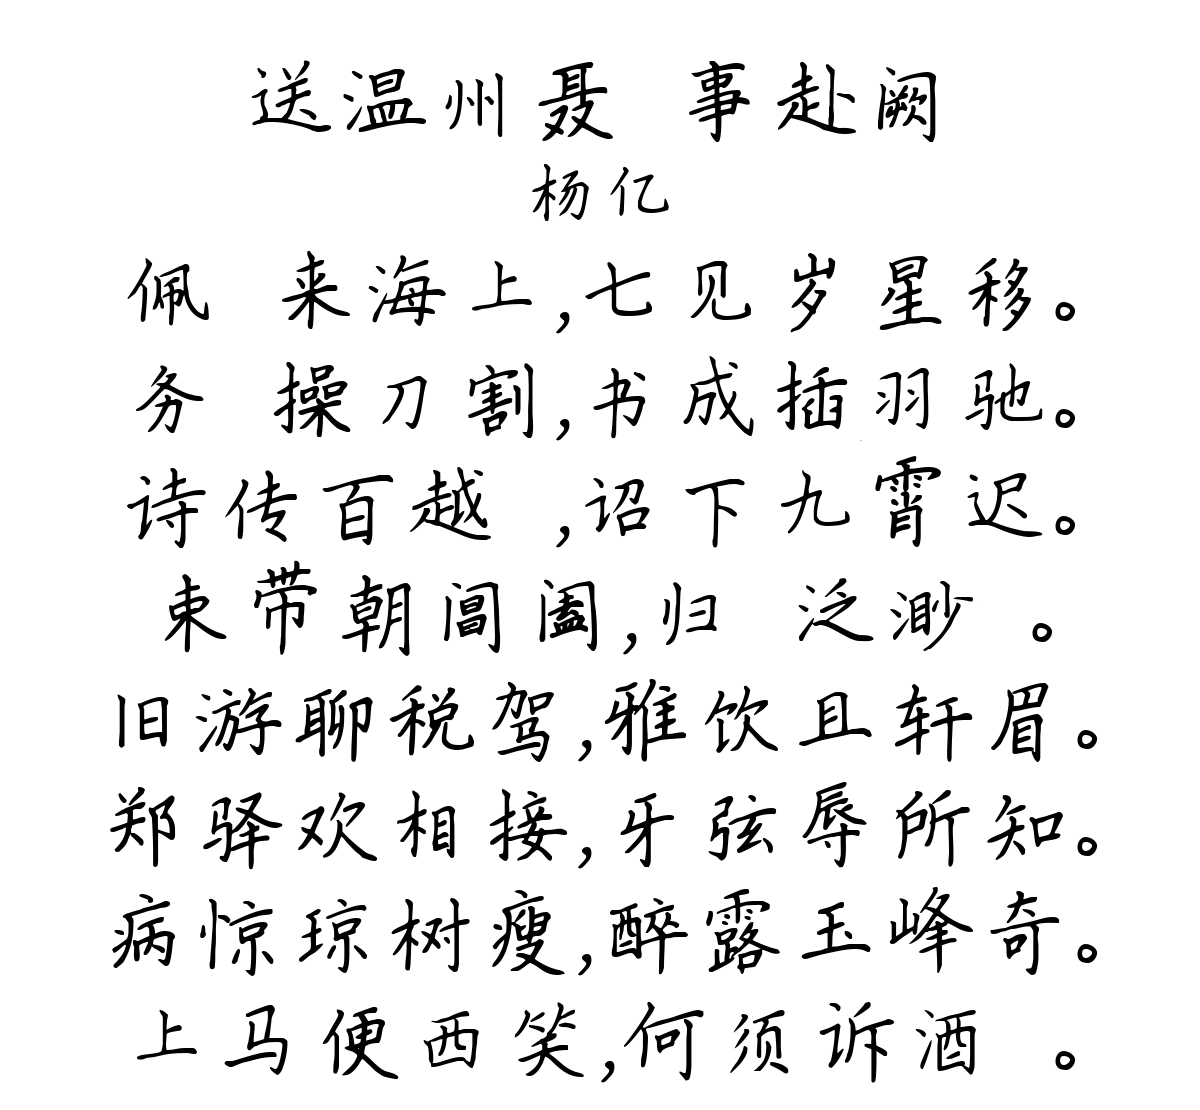 送温州聂 事赴阙
杨亿
佩 来海上,七见岁星移。
务 操刀割,书成插羽驰。
诗传百越 ,诏下九霄迟。
束带朝阊阖,归 泛渺 。
旧游聊税驾,雅饮且轩眉。
郑驿欢相接,牙弦辱所知。
病惊琼树瘦,醉露玉峰奇。
上马便西笑,何须诉酒 。